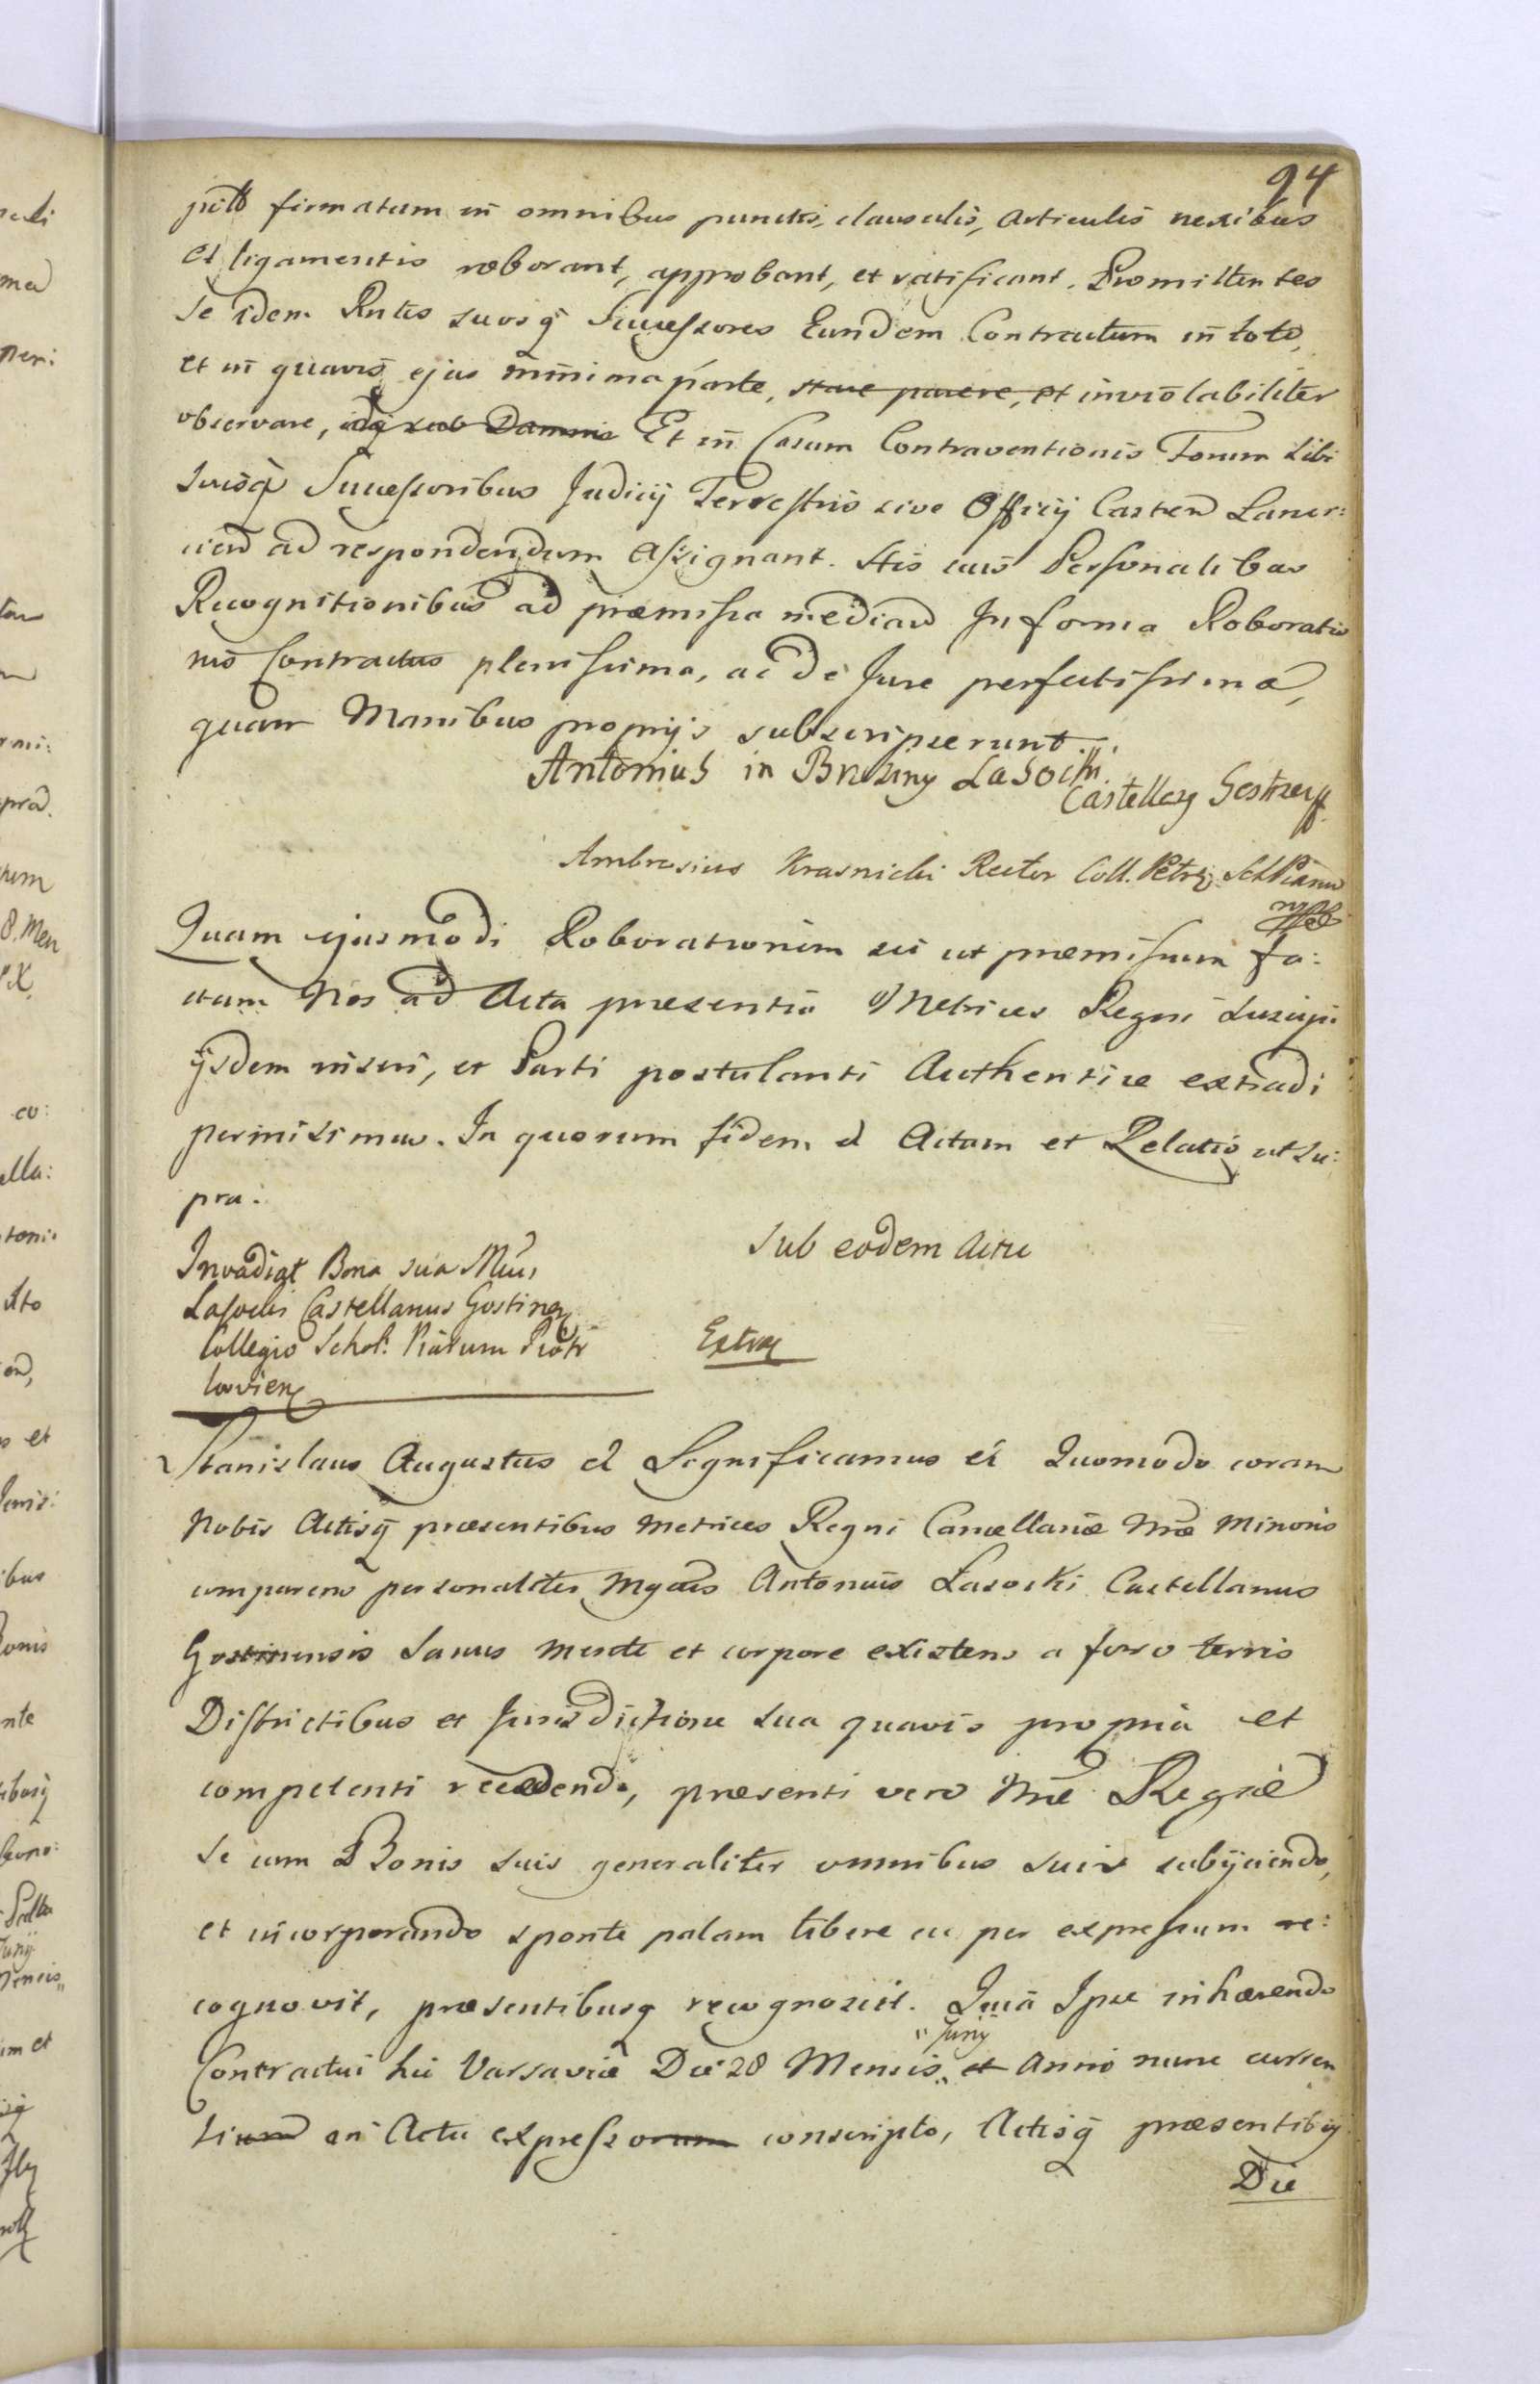 94
firmatum in omnibus punctis, clausulis, Articulis nexibus
et ligamentis roborant, approbant, et ratificant. Promittentes
Se idem Rntes suosq Successores Eundem Contractum in toto,
et in quavis ejus minima parte, stare parere, et inviolabiliter
observare, idq sub Damnis Et in Casum Contraventionis Forum sibi
suisq Successoribus Judicij Terrestris sive Officij Castren Lanci:
cien ad respondendum Assignant. Htis suis Personalibus
Recognitionibus ad præmissa median In forma Roboratio
nis Contractus plenissima, ac de Jure perfectissima,
quam Manibus proprijs subscripserunt.
Antonius in Brzeziny Lasocki
Castellg Gostÿ
Ambrosius Krasnicki Rector Coll. Petrq Sch Piaru
mpp
Quam ejusmodi Roborationem sic ut præmissum fa:
ctam Nos ad Acta præsentia Metrices Regni suscipi
ijsdem inseri, et Parti postulanti Authentice extradi
permisimus. In quorum fidem et Actum et Relatio ut su:
pra.
Sub eodem Actu
Invadiat Bona sua Mcus
Lasocki Castellanus Gostineñ
Collegio Schol. Piarum Piotr
covieñ
Extra
Stanislaus Augustus et Significamus et Quomodo coram
Nobis Actisq præsentibus Metrices Regni Cancellariæ Nræ Minoris
comparens personaliter Mgcus Antonius Lasocki Castellanus
Gostinensis Sanus mente et corpore existens a foro terris
Districtibus et Jurisdictione sua quavis propria et
competenti recedendo, præsenti vero Nræ Regiæ
Se cum Bonis suis generaliter omnibus suis subijciendo,
et incorporando sponte palam libere ac per expressum re:
cognovit, præsentibusq recognoscit. Quia Ipse inhærendo
"Junij
Contractui hic Varsaviæ Die 28 Mensis" et Anno nunc curren
tium in Actu expressorum conscripto, Actisq præsentibq
Die